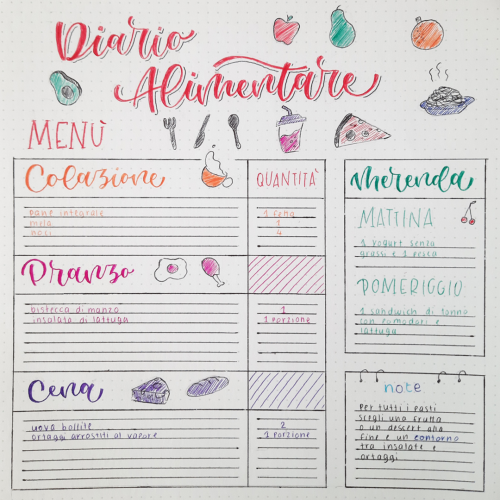 Diario
Alimentare
MENÙ
Colazione QUANTITÀ
pane integrale 1 fetta
mela 1
noci 4
Pranzo
bistecca di manzo 1
insalata di lattuga 1 porzione
Cena
uova bollite 2
ortaggi arrostiti al vapore 1 porzione
merenda
MATTINA
1 yogurt senza
grassi e 1 pesca
POMERIGGIO
1 sandwich di tonno
con pomodori e
lattuga
note
Per tutti i pasti
scegli una frutta
o un dessert alla
fine e un contorno
tra insalate e
ortaggi